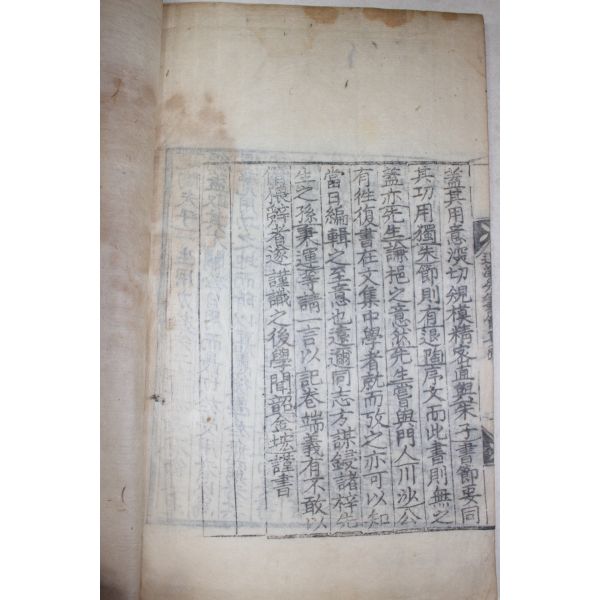 蓋其用意深切規模精密直與朱子書節要同
其功用獨朱節則有退陶序文而此書則無之
蓋亦先生論挹之意然先生嘗與門人川沙公
有往復書在文集中學者就而攷之亦可以知
當日編輯之至意也遠邇同志方謀鋟諸梓先
生之孫秉運等請一言以記卷端義有不敢以
僭猥辭者遂謹識之後學聞韶金㙆謹書